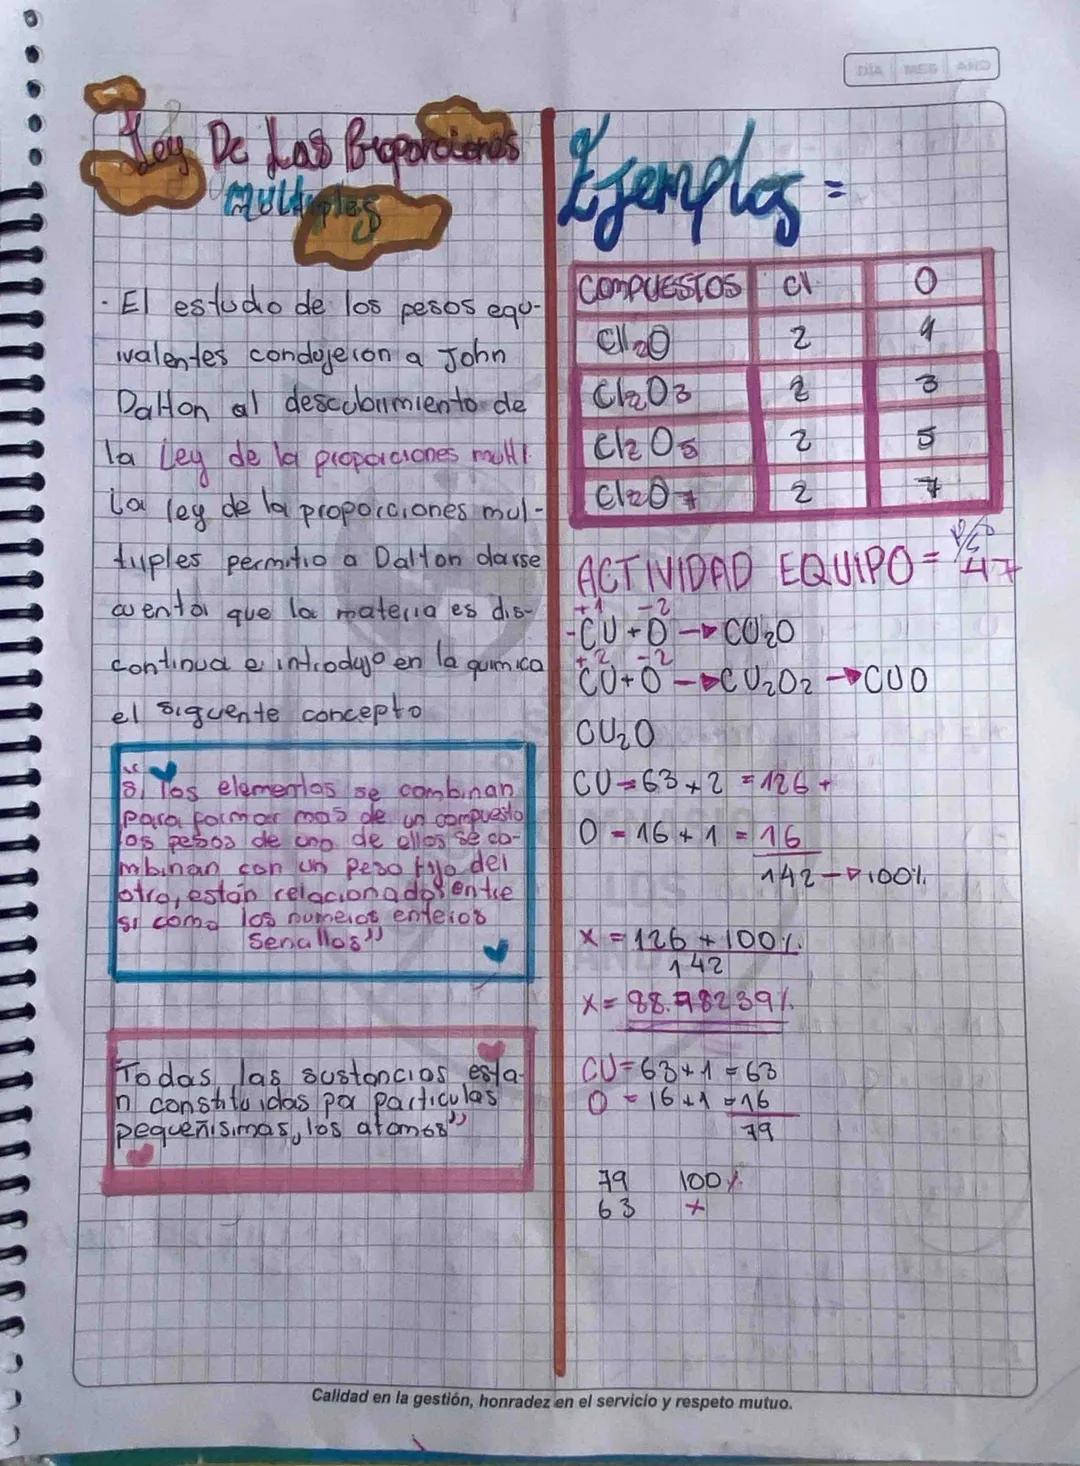 DÍA MES AÑO
Ley De Las Proporciones
Multiples
· El estudio de los pesos equ-
ivalentes condujeron a John
Dalton al descubrimiento de
la Ley de la proporciones multi
La ley de la proporciones mul-
tiples permitio a Dalton darse
cuenta que la materia es dis-
continua e introdujo en la quimica
el siguente concepto
"Si los elementos se combinan
para formar mas de un compuesto
los pesos de uno de ellos se co-
mbinan con un peso fijo del
otro, están relacionados entre
si como los numeros enteros
Sencillos"
Todas las sustancias esta-
n constituidas por particulas
pequeñisimas, los atomos"
Ejemplos =
COMPUESTOS Cl O
Cl2O 2 1
Cl2O3 2 3
Cl2O5 2 5
Cl2O7 2 7
ACTIVIDAD EQUIPO = 47
+1 -2
-CU + O → CU2O
+2 -2
CU + O → CU2O2 → CUO
CU2O
CU = 63 + 2 = 126 +
O = 16 + 1 = 16
142 → 100%
X = 126 + 100%
142
X = 88.78239%
CU = 63 + 1 = 63
O = 16 + 1 = 16
79
79 100%
63 x
Calidad en la gestión, honradez en el servicio y respeto mutuo.